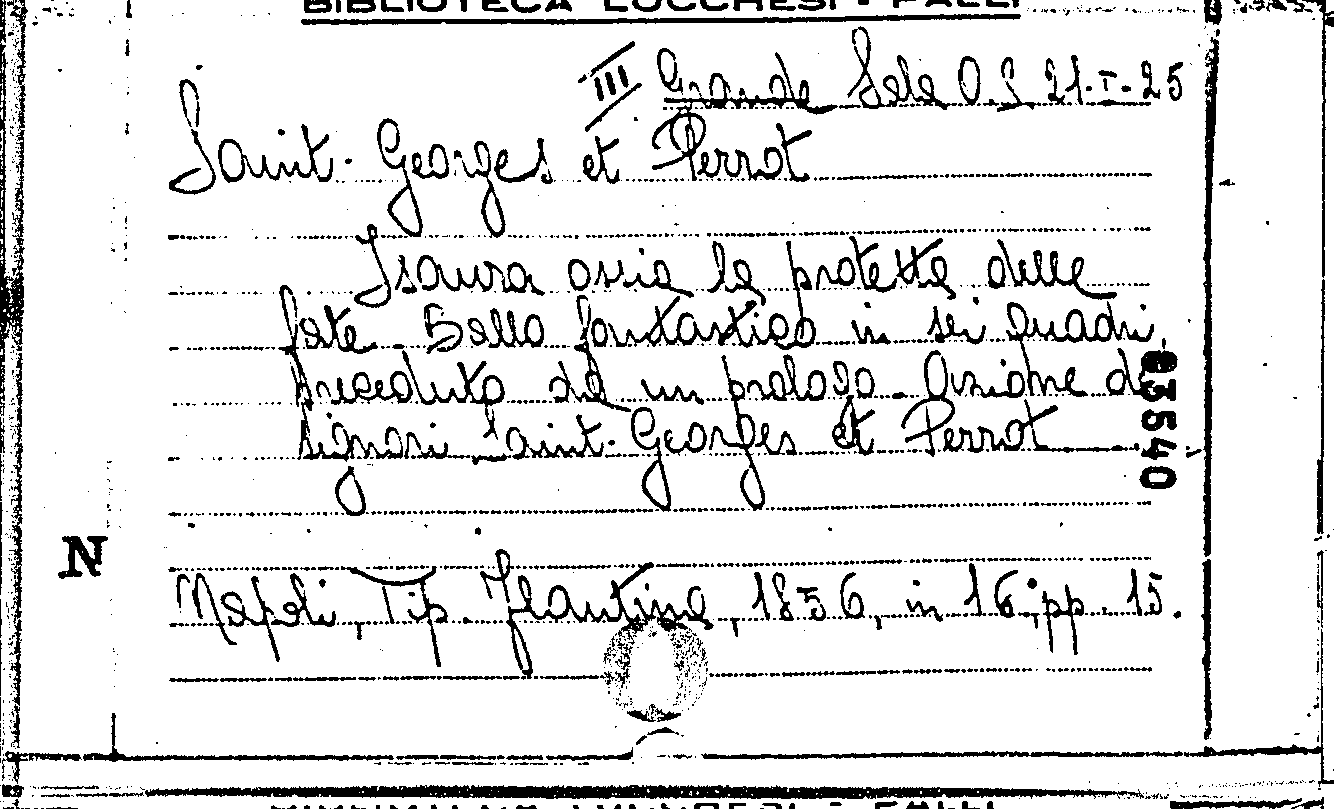 BIBLIOTECA LUCCHESI - PALLI
III Grande Sala O.S 21.I.25
Saint-Georges et Perrot
Isaura ossia la protetta delle
fate. Ballo fantastico in sei quadri,
preceduto da un prologo. Azione di
signori Saint-Georges et Perrot
83540
N
Napoli, Tip. Flautina, 1856, in 16; pp. 15.
LUCCHESI - PALLI